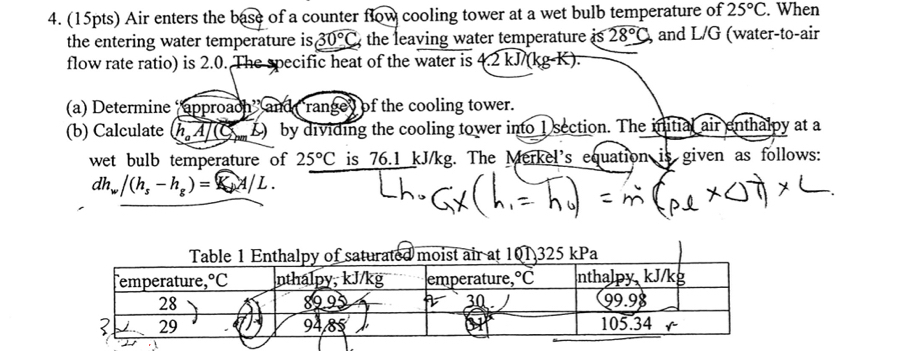 4. (15pts) Air enters the base of a counter flow cooling tower at a wet bulb temperature of 25°C. When
the entering water temperature is 30°C, the leaving water temperature is 28°C, and L/G (water-to-air
flow rate ratio) is 2.0. The specific heat of the water is 4.2 kJ/(kg-K).
(a) Determine “approach” and “range” of the cooling tower.
(b) Calculate (hₐA/(Cₚₘ L) by dividing the cooling tower into 1 section. The initial air enthalpy at a
wet bulb temperature of 25°C is 76.1 kJ/kg. The Merkel's equation is given as follows:
dh_w/(h_s – h_g) = KA/L.
Table 1 Enthalpy of saturated moist air at 101,325 kPa
emperature,°C nthalpy, kJ/kg emperature,°C nthalpy, kJ/kg
28 89.95 30 99.98
29 94.85 31 105.34